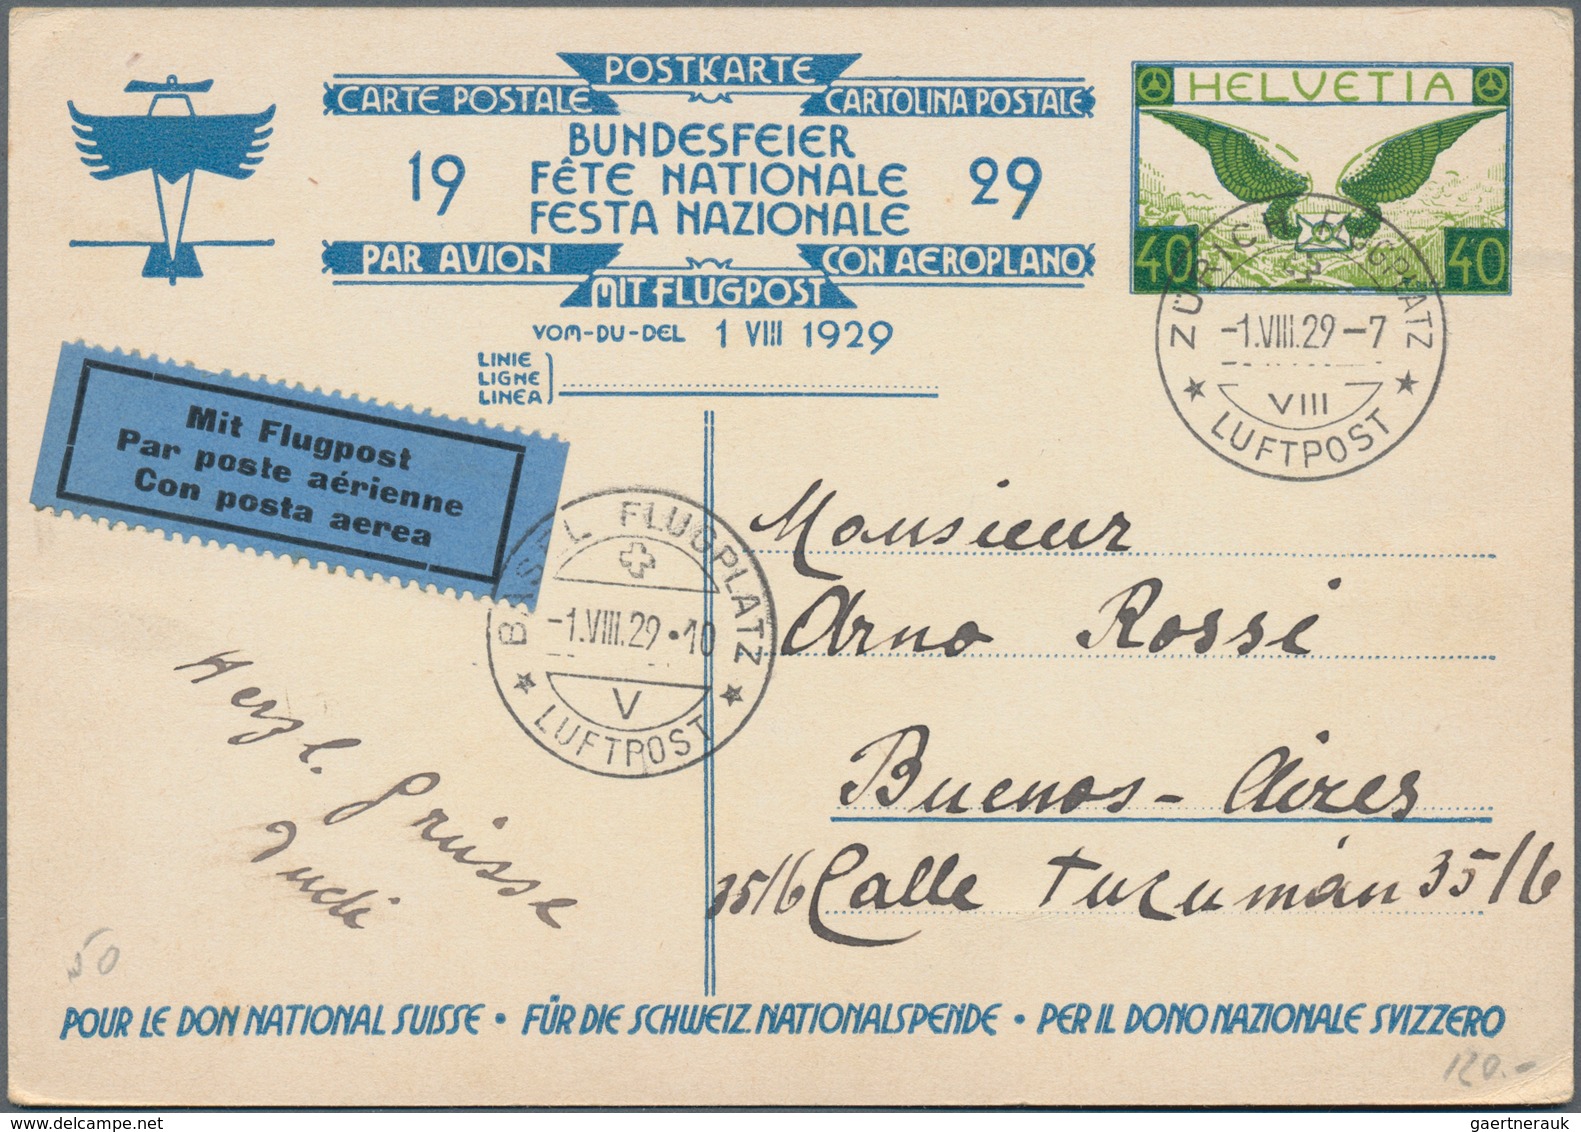 POSTKARTE
CARTE POSTALE CARTOLINA POSTALE
BUNDESFEIER
19 FÊTE NATIONALE 29
FESTA NAZIONALE
PAR AVION CON AEROPLANO
MIT FLUGPOST
VOM-DU-DEL 1 VIII 1929
LINIE
LIGNE
LINEA
HELVETIA
40 40
ZÜRICH FLUGPLATZ
-1.VIII.29-7
VIII
LUFTPOST
Mit Flugpost
Par poste aérienne
Con posta aerea
BASEL FLUGPLATZ
-1.VIII.29·10
V
LUFTPOST
Monsieur
Arno Rossi
Buenos-Aires
35/6 Calle Tucumán 35/6
Herzl. Grüsse
50
POUR LE DON NATIONAL SUISSE · FÜR DIE SCHWEIZ. NATIONALSPENDE · PER IL DONO NAZIONALE SVIZZERO
120.-
gaertnerauk @ delcampe.net